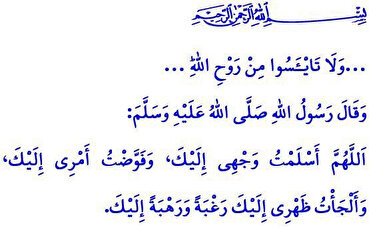 بِسْمِ اللهِ الرَّحْمٰنِ الرَّحِيمِ
...وَلَا تَايْـَٔسُوا مِنْ رَوْحِ اللهِ ...
وَقَالَ رَسُولُ اللهِ صَلَّى اللهُ عَلَيْهِ وَسَلَّمَ:
اَللّٰهُمَّ أَسْلَمْتُ وَجْهِى إِلَيْكَ، وَفَوَّضْتُ أَمْرِى إِلَيْكَ،
وَأَلْجَأْتُ ظَهْرِى إِلَيْكَ رَغْبَةً وَرَهْبَةً إِلَيْكَ.